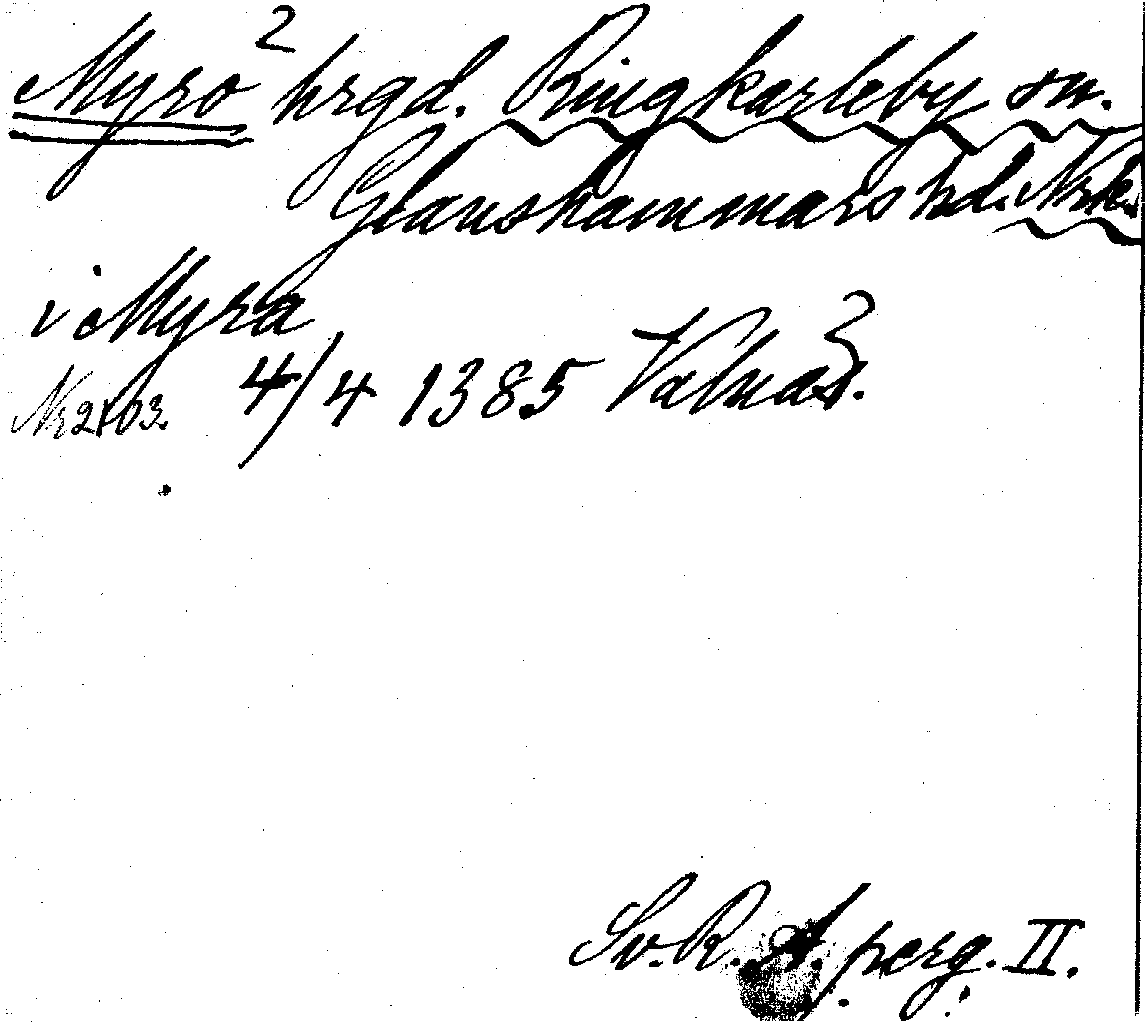 Myro² hrgd. Ringkarleby sn.
Glanshammars hd. Nrk.
i Myra
Nr 2103. 4/4 1385 Valnäs.
Sv. R. A. perg. II.